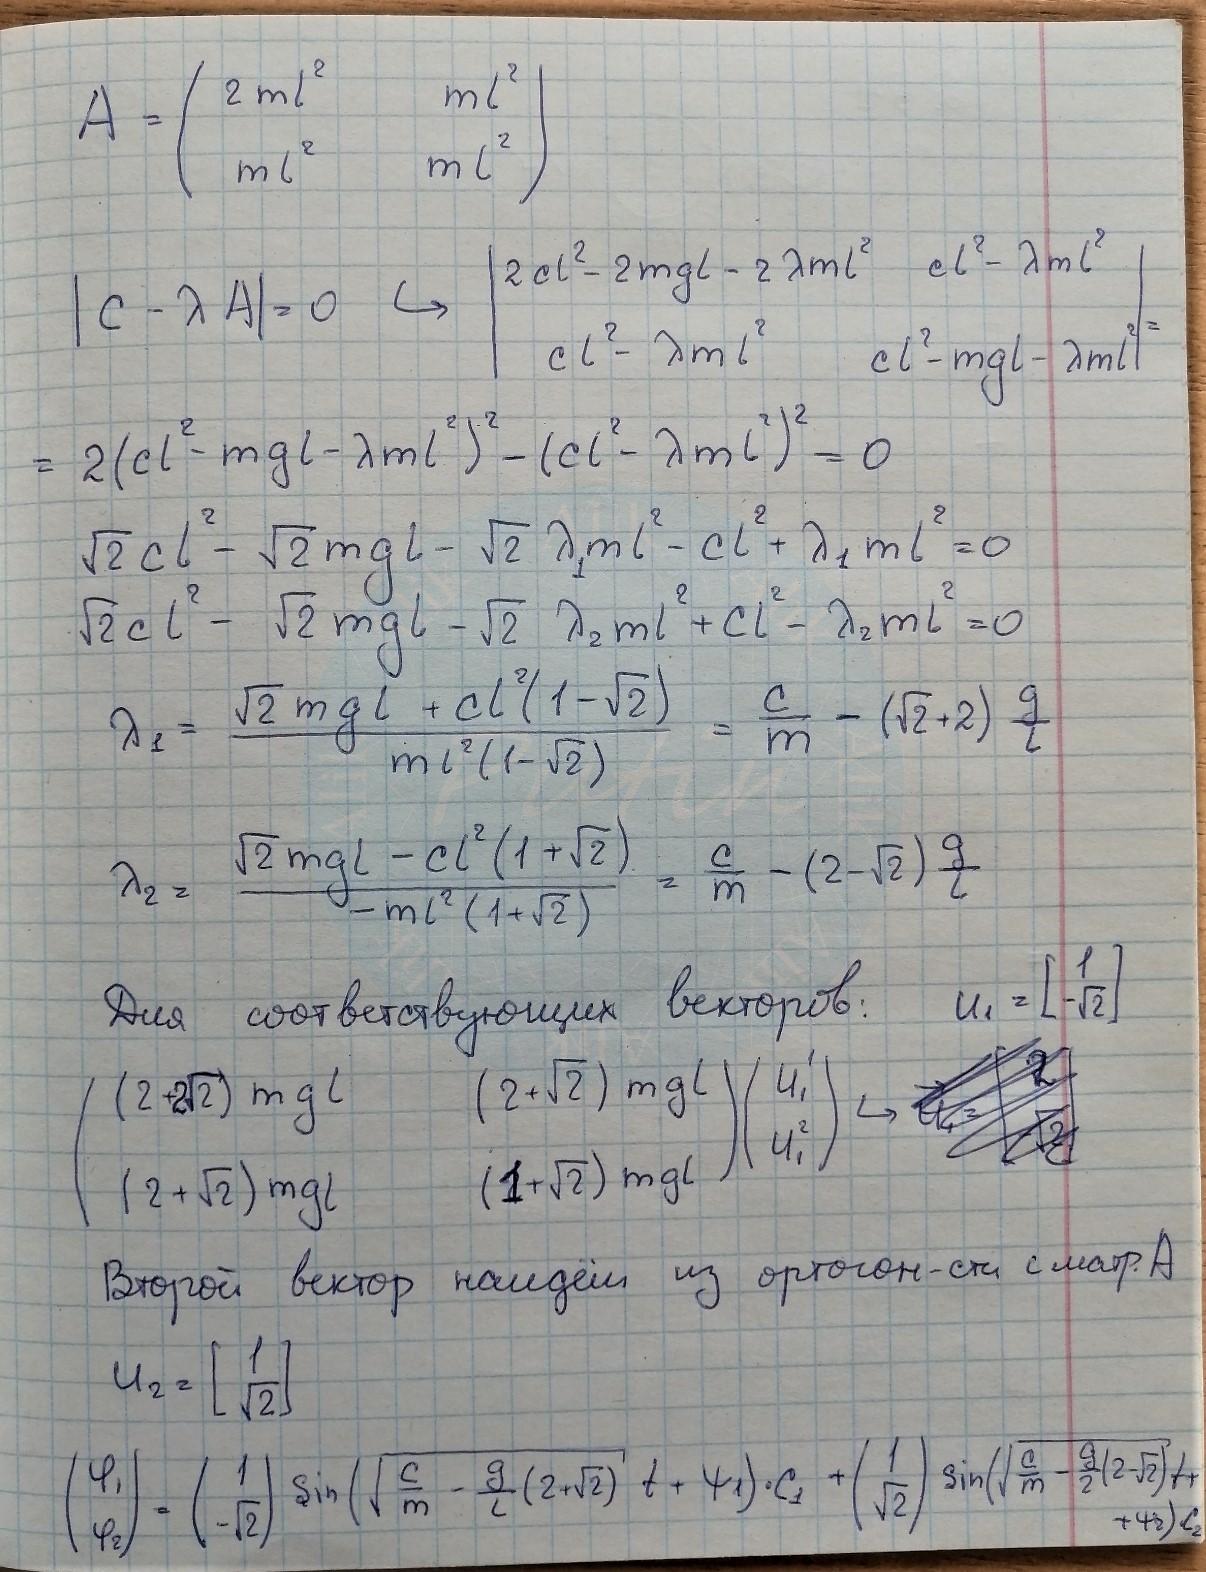 A = ( 2ml² ml²
ml² ml² )
|C - λA| = 0 ↪ | 2cl² - 2mgl - 2λml² cl² - λml²
cl² - λml² cl² - mgl - λml² | =
= 2(cl² - mgl - λml²)² - (cl² - λml²)² = 0
√2cl² - √2mgl - √2 λ₁ml² - cl² + λ₁ml² = 0
√2cl² - √2mgl - √2 λ₂ml² + cl² - λ₂ml² = 0
λ₁ = (√2mgl + cl²(1-√2)) / (ml²(1-√2)) = c/m - (√2+2) g/l
λ₂ = (√2mgl - cl²(1+√2)) / (-ml²(1+√2)) = c/m - (2-√2) g/l
Для соответствующих векторов: u₁ = [ 1
-√2 ]
( (2+2√2) mgl (2+√2) mgl
(2+√2) mgl (1+√2) mgl ) ( u₁¹
u₁² ) ↪
Второй вектор найдём из ортогон-сти с матр. A
u₂ = [ 1
√2 ]
( φ₁
φ₂ ) = ( 1
-√2 ) sin(√(c/m - g/l (2+√2)) t + ψ₁)·C₁ + ( 1
√2 ) sin(√(c/m - g/2 (2-√2)) t +
+ψ₂) C₂